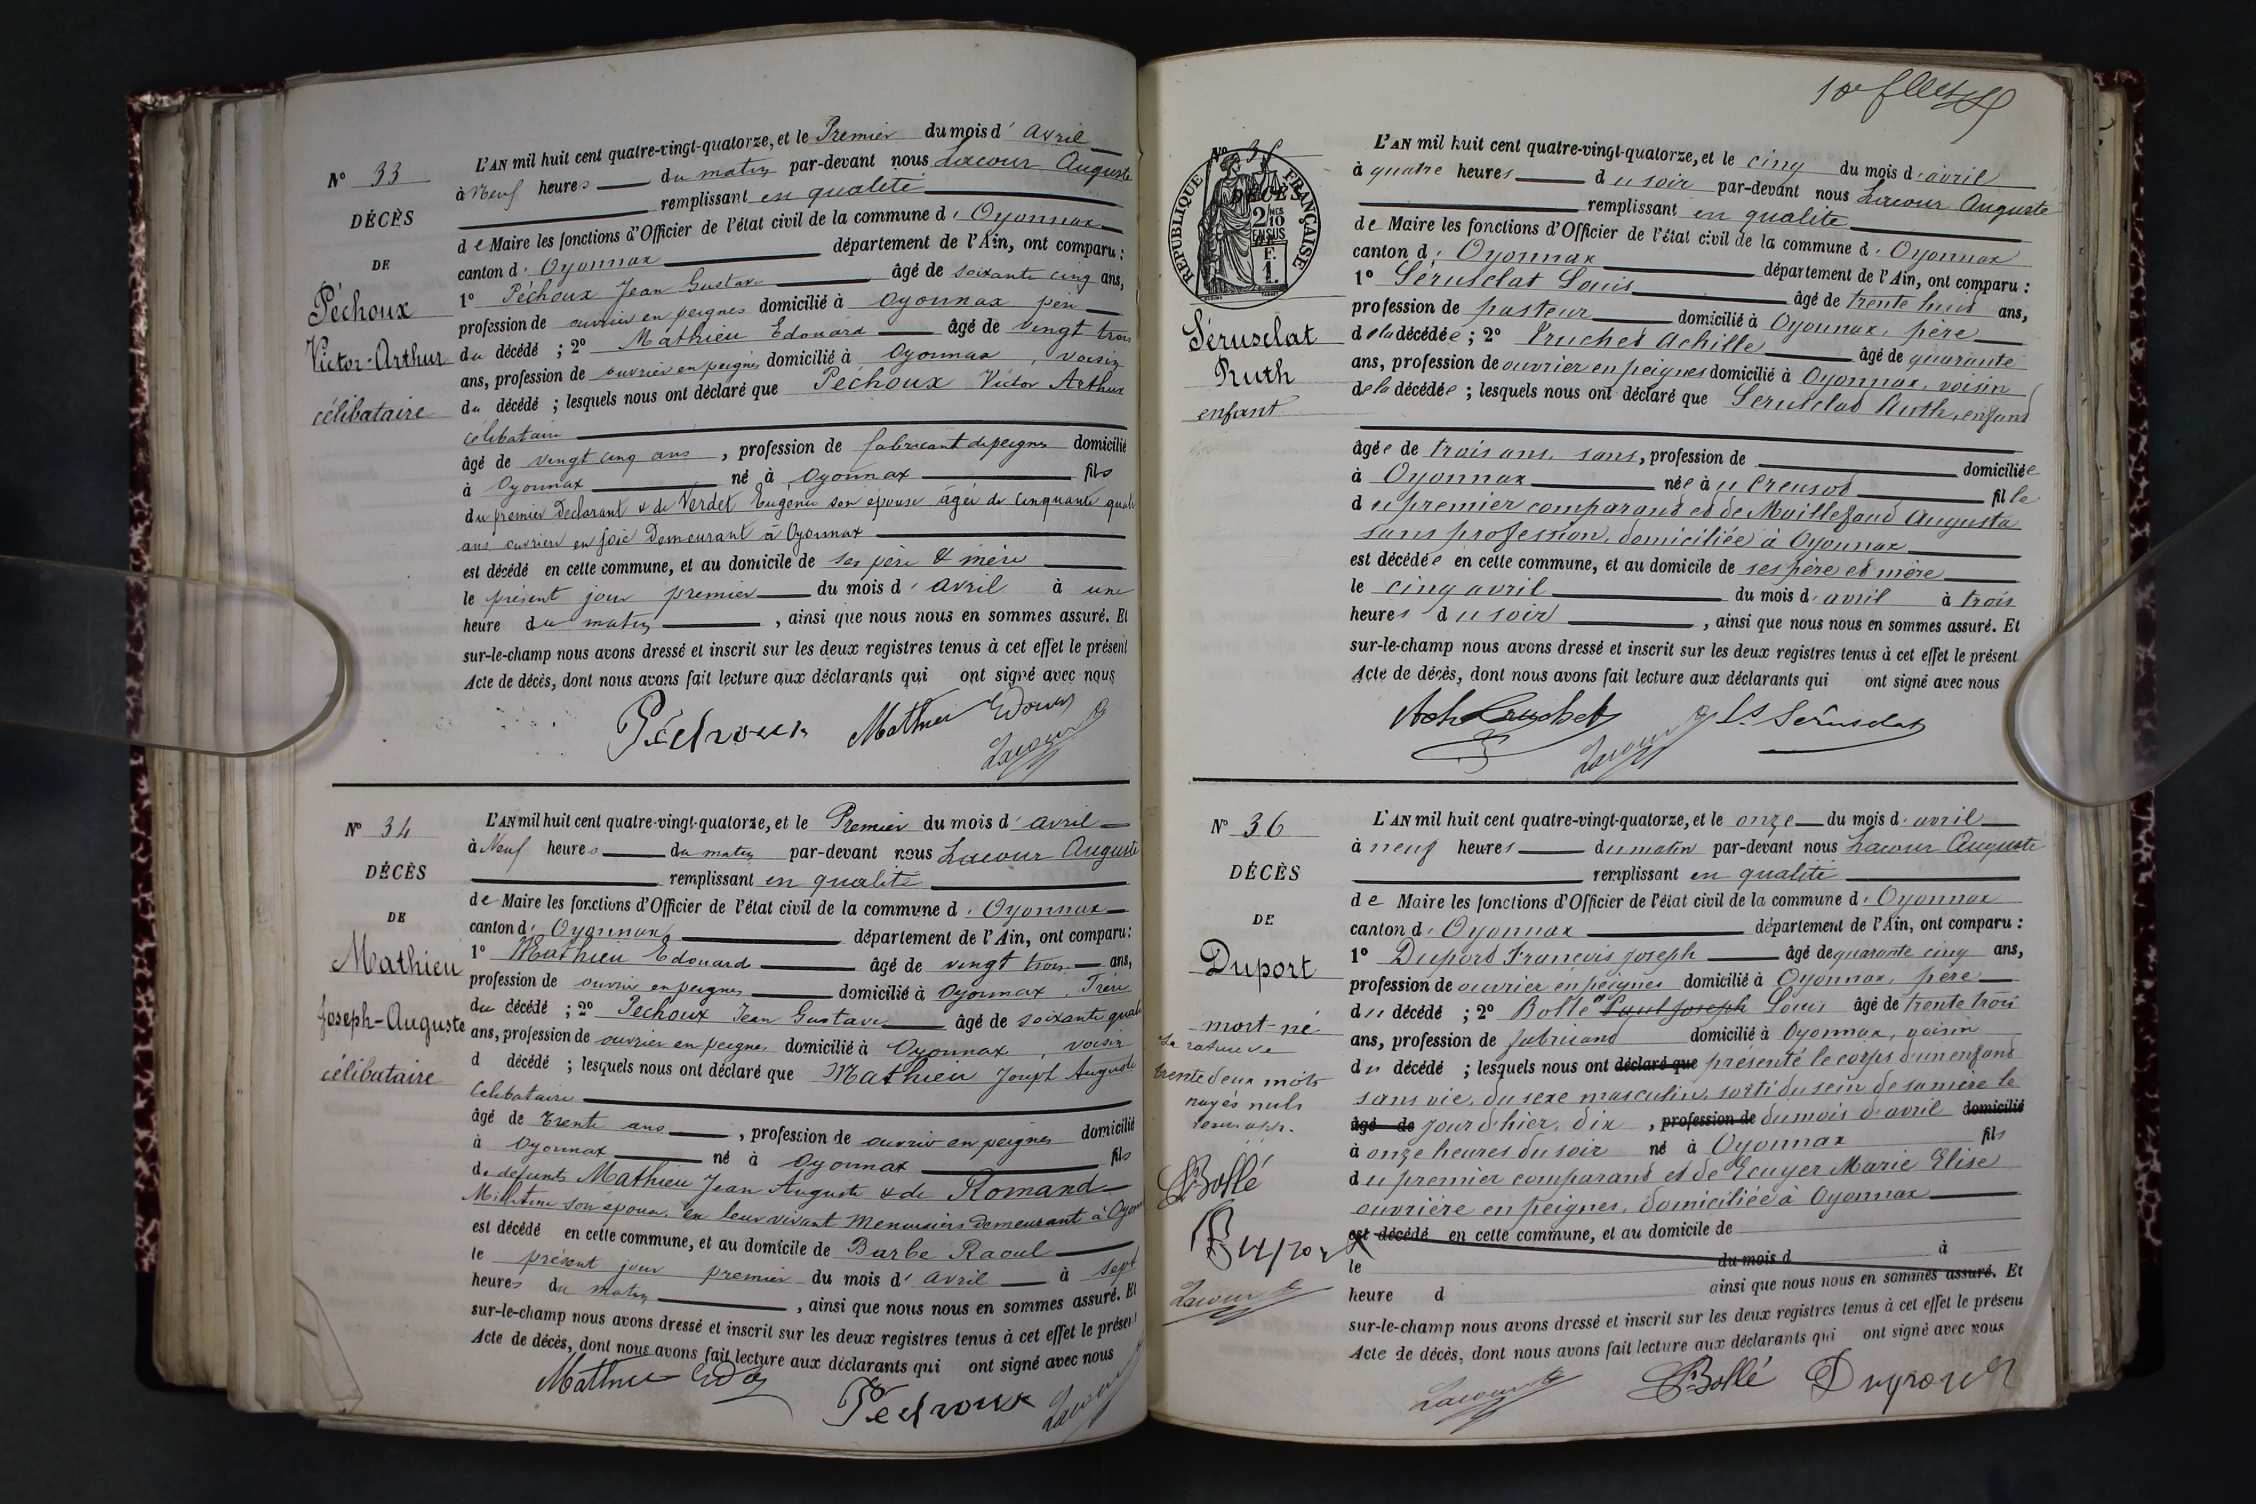 N° 33
DÉCÈS
DE
Péchoux
Victor-Arthur
célibataire
L'AN mil huit cent quatre-vingt-quatorze, et le Premier du mois d' Avril
à Neuf heures du matin par-devant nous Lacour Auguste
remplissant en qualité
de Maire les fonctions d'Officier de l'état civil de la commune d' Oyonnax
canton d' Oyonnax département de l'Ain, ont comparu :
1° Péchoux Jean Gustave âgé de soixante cinq ans,
profession de ouvrier en peignes domicilié à Oyonnax père
du décédé ; 2° Mathieu Edouard âgé de vingt trois
ans, profession de ouvrier en peignes domicilié à Oyonnax, voisin
du décédé ; lesquels nous ont déclaré que Péchoux Victor Arthur
célibataire
âgé de vingt cinq ans, profession de fabricant de peignes domicilié
à Oyonnax né à Oyonnax fils
du premier Declarant & de Verdet Eugénie son épouse âgée de Cinquante quatre
ans ouvrière en soie Demeurant à Oyonnax
est décédé en cette commune, et au domicile de ses père & mère
le présent jour premier du mois d' avril à une
heure du matin, ainsi que nous nous en sommes assuré. Et
sur-le-champ nous avons dressé et inscrit sur les deux registres tenus à cet effet le présent
Acte de décès, dont nous avons fait lecture aux déclarants qui ont signé avec nous
Péchoux Mathieu Edouard
Lacour
N° 34
DÉCÈS
DE
Mathieu
Joseph-Auguste
célibataire
L'AN mil huit cent quatre-vingt-quatorze, et le Premier du mois d' avril
à Neuf heures du matin par-devant nous Lacour Auguste
remplissant en qualité
de Maire les fonctions d'Officier de l'état civil de la commune d' Oyonnax
canton d' Oyonnax département de l'Ain, ont comparu :
1° Mathieu Edouard âgé de vingt trois ans,
profession de ouvrier en peignes domicilié à Oyonnax, Frère
du décédé ; 2° Péchoux Jean Gustave âgé de soixante quatre
ans, profession de ouvrier en peignes domicilié à Oyonnax, voisin
d décédé ; lesquels nous ont déclaré que Mathieu Joseph Auguste
Célibataire
âgé de Trente ans, profession de ouvrier en peignes domicilié
à Oyonnax né à Oyonnax fils
de défunts Mathieu Jean Auguste & de Romand
son épouse, en leur vivant Menuisiers demeurant à Oyonnax
est décédé en cette commune, et au domicile de Barbe Raoul
le présent jour premier du mois d' avril à sept
heures du matin, ainsi que nous nous en sommes assuré. Et
sur-le-champ nous avons dressé et inscrit sur les deux registres tenus à cet effet le présent
Acte de décès, dont nous avons fait lecture aux déclarants qui ont signé avec nous
Mathieu Péchoux Lacour
N° 35
DÉCÈS
RÉPUBLIQUE FRANÇAISE
2/10 EN SUS
F. 1.
Sérusclat
Ruth
enfant
L'AN mil huit cent quatre-vingt-quatorze, et le cinq du mois d' avril
à quatre heures du soir par-devant nous Lacour Auguste
remplissant en qualité
de Maire les fonctions d'Officier de l'état civil de la commune d' Oyonnax
canton d' Oyonnax département de l'Ain, ont comparu :
1° Sérusclat Louis âgé de trente huit ans,
profession de pasteur domicilié à Oyonnax, père
de la décédée ; 2° Cruchet Achille âgé de quarante
ans, profession de ouvrier en peignes domicilié à Oyonnax, voisin
de la décédée ; lesquels nous ont déclaré que Serusclat Ruth, enfant
âgée de trois ans, sans, profession de domiciliée
à Oyonnax née à u Creusot fille
du premier comparant et de Maillefaud Augusta
sans profession, domiciliée à Oyonnax
est décédée en cette commune, et au domicile de ses père et mère
le cinq avril du mois d' avril à trois
heures du soir, ainsi que nous nous en sommes assuré. Et
sur-le-champ nous avons dressé et inscrit sur les deux registres tenus à cet effet le présent
Acte de décès, dont nous avons fait lecture aux déclarants qui ont signé avec nous
Ach Cruchet Lacour Ls Sérusclat
N° 36
DÉCÈS
DE
Duport
mort-né
La rature de
trente deux mots
rayés nuls
Bollé
Duport
Lacour
L'AN mil huit cent quatre-vingt-quatorze, et le onze du mois d' avril
à neuf heures du matin par-devant nous Lacour Auguste
remplissant en qualité
de Maire les fonctions d'Officier de l'état civil de la commune d' Oyonnax
canton d' Oyonnax département de l'Ain, ont comparu :
1° Duport François Joseph âgé de quarante cinq ans,
profession de ouvrier en peignes domicilié à Oyonnax, père
du décédé ; 2° Bollé Paul Joseph Louis âgé de trente trois
ans, profession de fabricant domicilié à Oyonnax, voisin
du décédé ; lesquels nous ont déclaré que présenté le corps d'un enfant
sans vie, du sexe masculin, sorti du sein de sa mère le
âgé de jour d'hier, dix, profession de du mois d'avril domicilié
à onze heures du soir né à Oyonnax fils
du premier comparant et de Ecuyer Marie Elise
ouvrière en peignes, domiciliée à Oyonnax
est décédé en cette commune, et au domicile de
le du mois d à
heure d ainsi que nous nous en sommes assuré. Et
sur-le-champ nous avons dressé et inscrit sur les deux registres tenus à cet effet le présent
Acte de décès, dont nous avons fait lecture aux déclarants qui ont signé avec nous
Lacour Bollé Duport